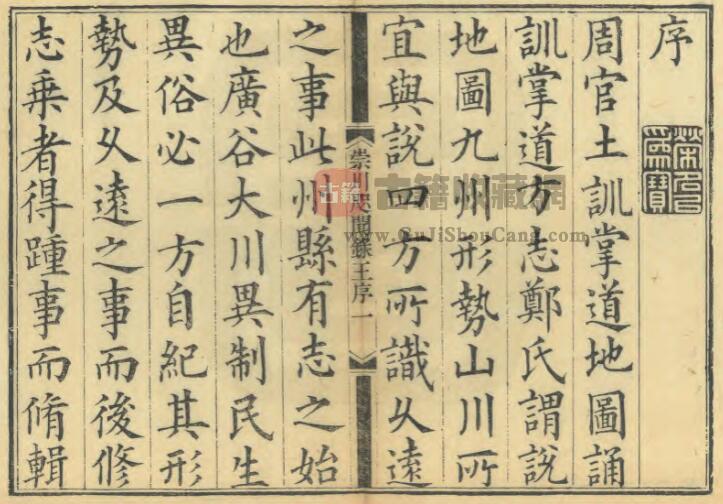 序
榮名㠯
為寶
周官土訓掌道地圖誦
訓掌道方志鄭氏謂說
地圖九州形勢山川所
宜與說四方所識乆遠
崇川咫聞錄王序一
之事此州縣有志之始
也廣谷大川異制民生
異俗必一方自紀其形
勢及乆遠之事而後修
志乘者得踵事而脩輯
古籍
古籍收藏網
www.GuJiShouCang.com